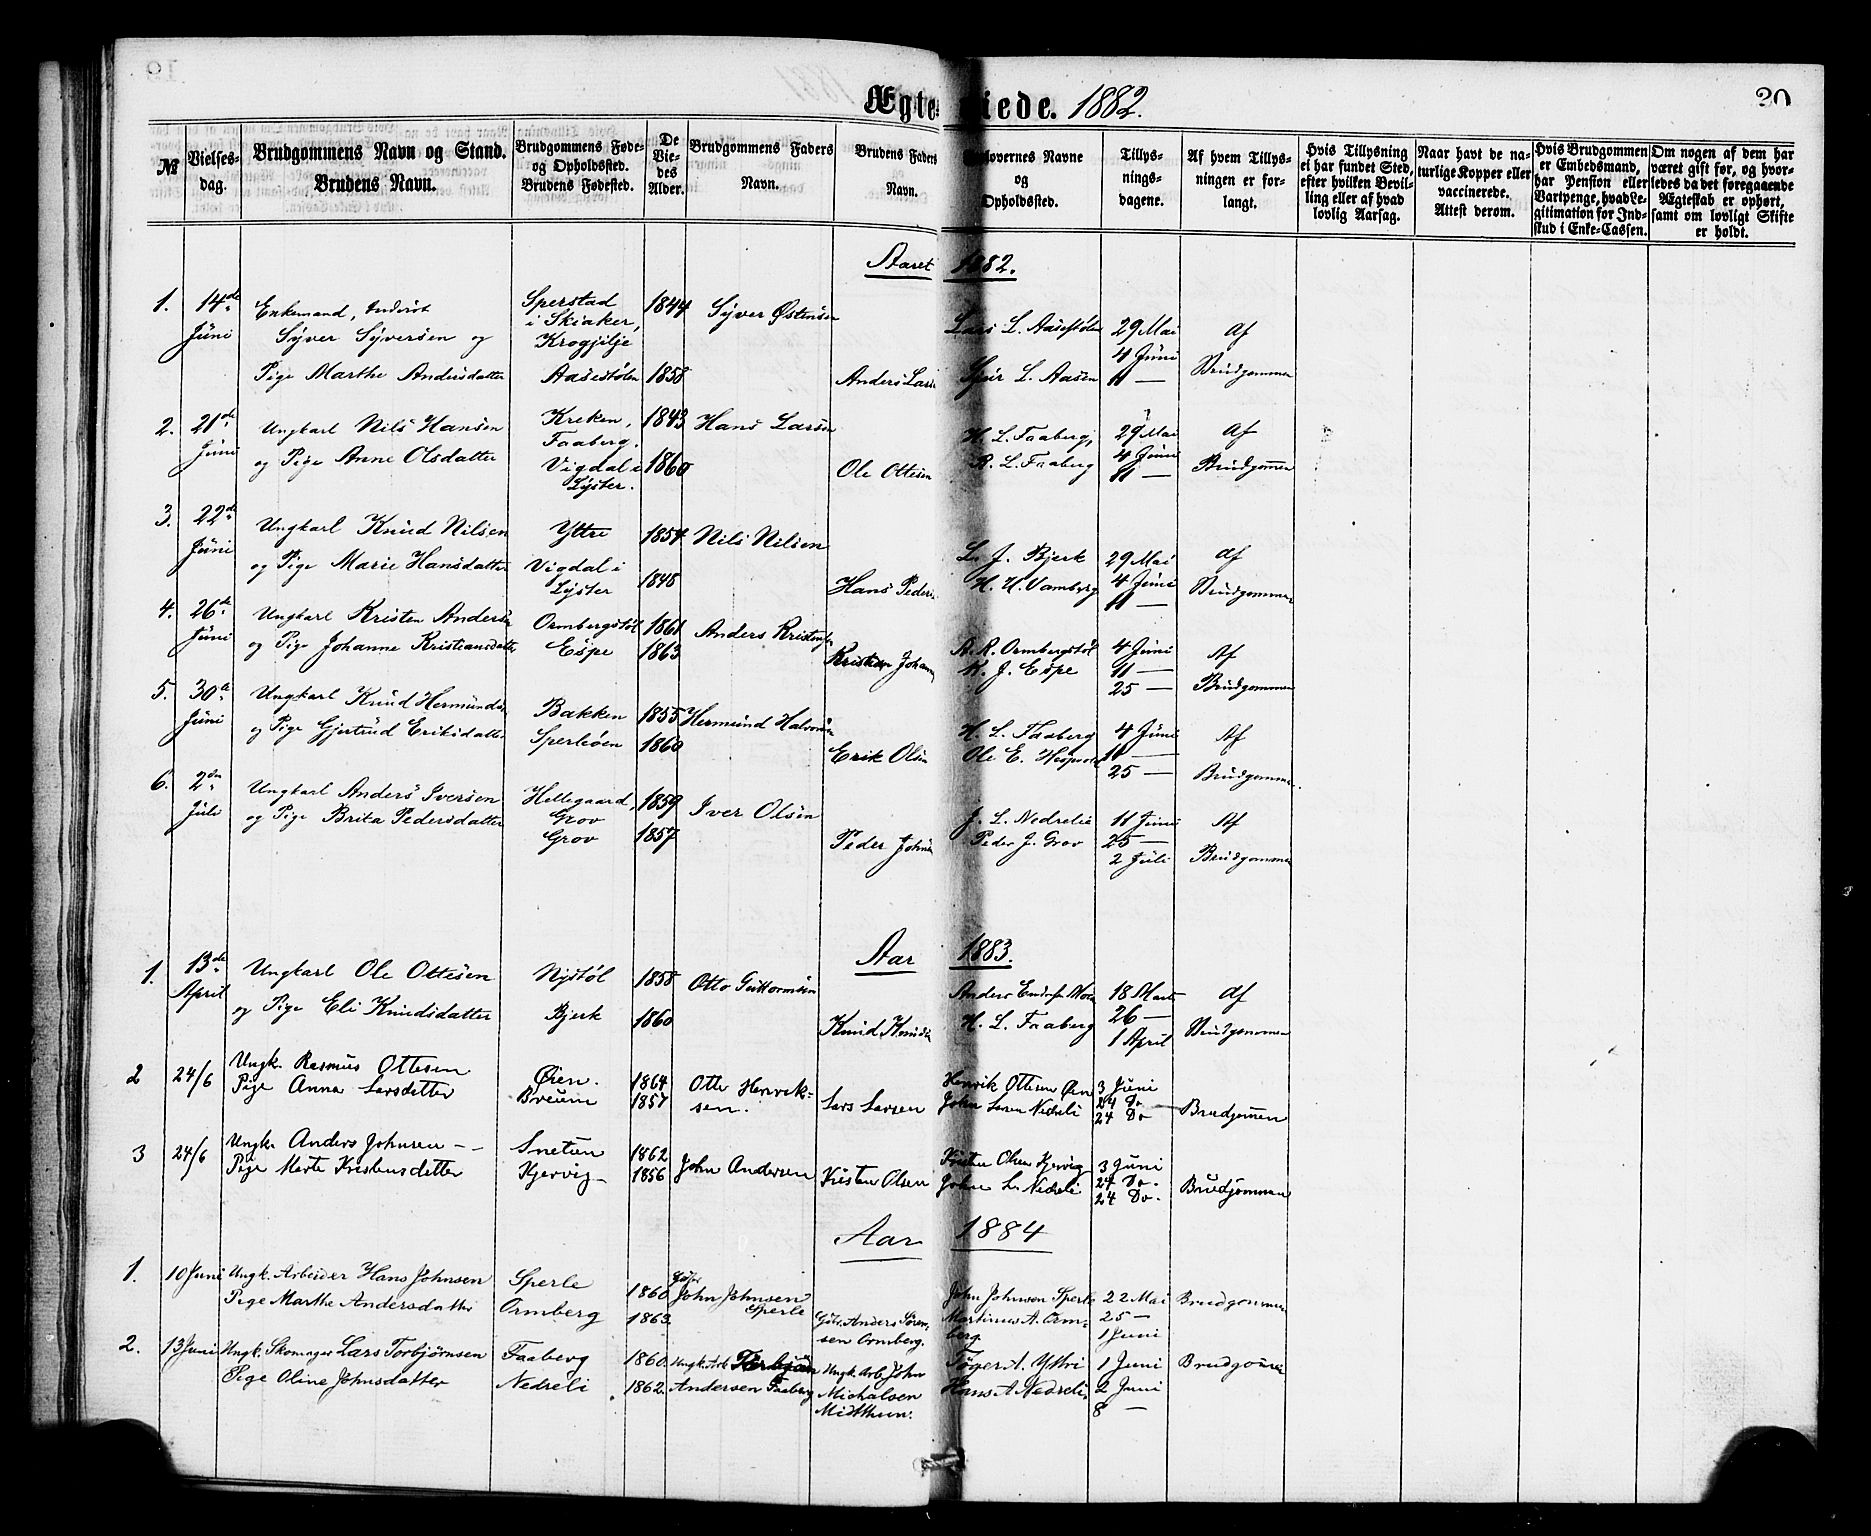 Ægteviede. 1882.
20
№
Vielses-dag.
Brudgommens Navn og Stand. Brudens Navn.
Brudgommens Føde- og Opholdssted. Brudens Fødested.
De Viedes Alder.
Brudgommens Faders Navn.
Brudens Faders Navn.
Forlovernes Navne og Opholdssted.
Tillysningsdagene.
Af hvem Tillysningen er forlangt.
Hvis Tillysning ei har fundet Sted, efter hvilken Bevilling eller af hvad lovlig Aarsag.
Naar havt de naturlige Kopper eller vaccinerede. Attest derom.
Hvis Brudgommen er Embedsmand, har Pension eller Vartpenge, hvad Legitimation for Indskud i Enke-Cassen.
Om nogen af dem har været gift før, og hvorledes da det foregaaende Ægteskab er ophørt, samt om lovligt Skifte er holdt.
Aaret 1882.
1. 14de Enkemand, Sperstad 1844 Syver Østensen
Juni Syver Syversen og i Skiaker, Krogjilje Lars L. Aasestølen 29 Mai Af
4 Juni
Pige Marthe Andersdatter Aasestølen 1858 Anders Larsen L. Aasen 11 — Brudgommen
2. 21de Ungkarl Nils Hansen Kreken, 1843 Hans Larsen H. L. Faaberg, 29 Mai Af
Juni Faaberg. 4 Juni
og Pige Anne Olsdatter Vigdal i Lyster. 1860 Ole Ottesen R. L. Faaberg 11 — Brudgommen
3. 22de Ungkarl Knud Nilsen Yttre 1854 Nils Nilsen L. J. Bjerk 29 Mai Af
Juni og Pige Marie Hansdatter Vigdal i Lyster 1848 Hans Peders. H. H. Vamberg 4 Juni Brudgommen
11 —
4. 26de Ungkarl Kristen Andersen Ormbergstøl 1861 Anders Kristensen A. K. Ormbergstøl 4 Juni Af
Juni og Pige Johanne Kristiansdatter Espe 1863 Kristian Johann K. J. Espe 11 —
25 — Brudgommen
5. 30te Ungkarl Knud Hermundsen Bakken 1855 Hermund Halvorsen H. L. Faaberg 4 Juni Af
Juni og Pige Gjertrud Eriksdatter Sperleøen 1860 Erik Olsen Ole E. 11 —
25 — Brudgommen
6. 2den Ungkarl Anders Iversen Hellegaard, Grov 1859 Iver Olsen J. L. Nedrelie 11 Juni Af
Juli og Pige Brita Pedersdatter Grov 1857 Peder Johnsen Peder J. Grov 25 —
2 Juli Brudgommen
Aar 1883.
1. 13de Ungkarl Ole Ottesen Nystøl 1858 Otto Guttormsen Anders Moen 18 Marts Af
April og Pige Eli Knudsdatter Bjerk 1860 Knud Knudsen H. L. Faaberg 26 — Brudgommen
1 April
2 24/6 Ungk. Rasmus Ottesen Øien. 1864 Otto Henriksen. Henrik Ottesen Øien 3 Juni
Pige Anna Larsdatter Breum 1857 Lars Larsen John Larsen Nedreli 24 Do — Brudgommen
24 Do
3 24/6 Ungk. Anders Johnsen — Snetun 1862 John Andersen Kristen Olsen Kjervig 3 Juni
Pige Marte Kristensdatter Kjervig — 1856 Kristen Olsen John L. Nedreli 24 Do. Brudgommen
24 Do.
Aar 1884
1. 10 Juni Ungk. Arbeider Hans Johnsen Sperle 1860 John Johnsen Sperle John Johnsen Sperle 22 Mai Brudgommen
Pige Marthe Andersdatter Ormberg 1863. Anders Sørensen Ormberg. Martinus A. Ormberg. 25 —
1 Juni
2. 13 Juni Ungk. Skomager Lars Torbjørnsen Faaberg 1860. Ungk. Arb. Torbjørn Ungk. Arb. John Tøger A. Yttri 1 Juni Brudgommen
Pige Oline Johnsdatter Nedreli. 1862. Andersen Faaberg Michalsen Hans A Nedreli. 2 Juni
Midtthun. 8 —